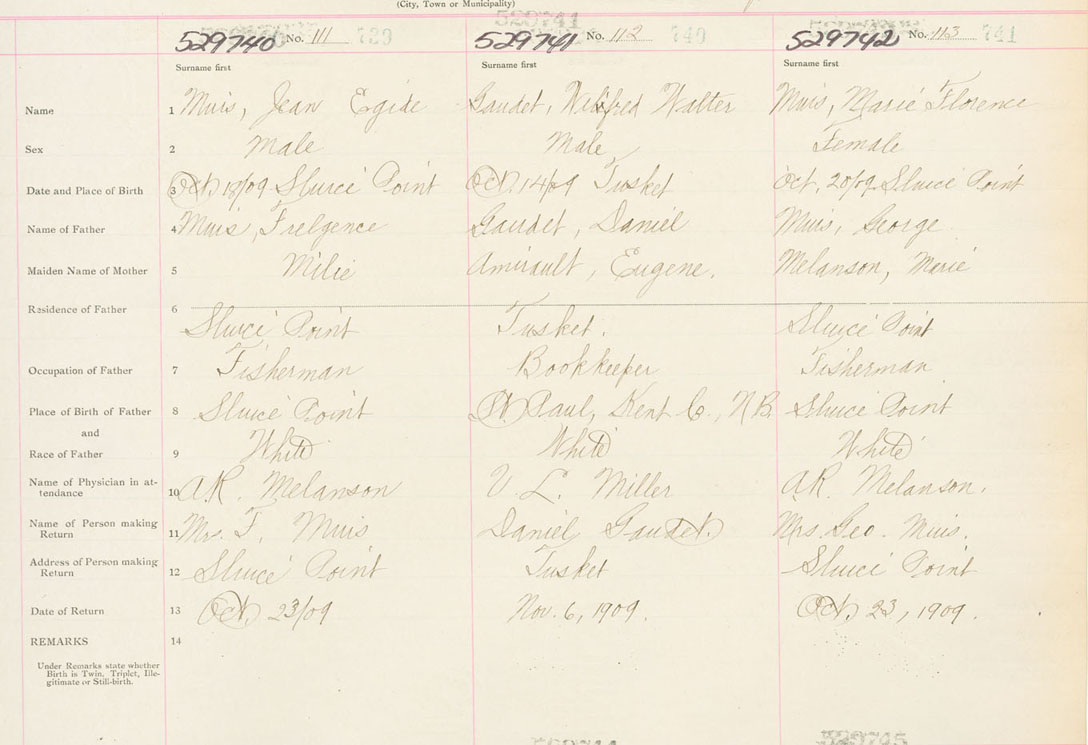 (City, Town or Municipality)
529741
529740 No. 111 739 529741 No. 112 740 529742 No. 113 741
Surname first Surname first Surname first
Name 1 Muis, Jean Egide Gaudet, Wilfred Walter Muis, Marie Florence
Sex 2 Male Male Female
Date and Place of Birth 3 Oct, 18/09 Sluice Point Oct, 14/09 Tusket Oct, 20/09 Sluice Point
Name of Father 4 Muis, Frelgence Gaudet, Daniel Muis, George
Maiden Name of Mother 5 Milie Amirault, Eugene. Melanson, Marie
Residence of Father 6
Sluice Point Tusket. Sluice Point
Occupation of Father 7 Fisherman Bookkeeper Fisherman
Place of Birth of Father 8 Sluice Point St. Paul, Kent Co., N.B. Sluice Point
and
Race of Father 9 White White White
Name of Physician in at-
tendance 10 A.R. Melanson V. L. Miller A.R. Melanson.
Name of Person making
Return 11 Mrs. F. Muis Daniel Gaudet. Mrs. Geo. Muis.
Address of Person making
Return 12 Sluice Point Tusket Sluice Point
Date of Return 13 Oct, 23/09 Nov. 6, 1909. Oct, 23, 1909.
REMARKS 14
Under Remarks state whether
Birth is Twin, Triplet, Ille-
gitimate or Still-birth.